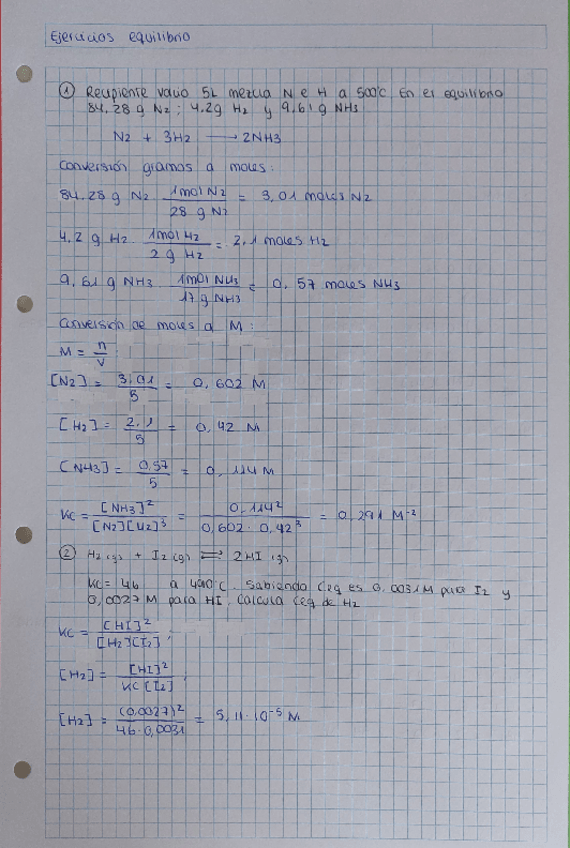 Ejercicios equilibrio
① Recipiente vacío 5L mezcla N e H a 500°C En el equilibrio
84,28 g N2 ; 4.2g H2 y 9,61g NH3
N2 + 3H2 → 2NH3
Conversión gramos a moles:
84.28 g N2 · 1mol N2 / 28 g N2 = 3,01 moles N2
4,2 g H2 · 1mol H2 / 2 g H2 = 2,1 moles H2
9,61 g NH3 · 1mol NH3 / 17 g NH3 = 0,57 moles NH3
Conversión de moles a M:
M = n / V
[N2] = 3,01 / 5 = 0,602 M
[H2] = 2,1 / 5 = 0,42 M
[NH3] = 0,57 / 5 = 0,114 M
Kc = [NH3]² / [N2][H2]³ = 0,114² / 0,602 · 0,42³ = 0,291 M⁻²
② H2 (g) + I2 (g) ⇌ 2HI (g)
Kc = 46 a 490°C. Sabiendo Ceq es 0,0031M para I2 y
0,0027 M para HI, calcula Ceq de H2
Kc = [HI]² / [H2][I2] ;
[H2] = [HI]² / Kc [I2] ;
[H2] = (0,0027)² / 46 · 0,0031 = 5,11 · 10⁻⁵ M